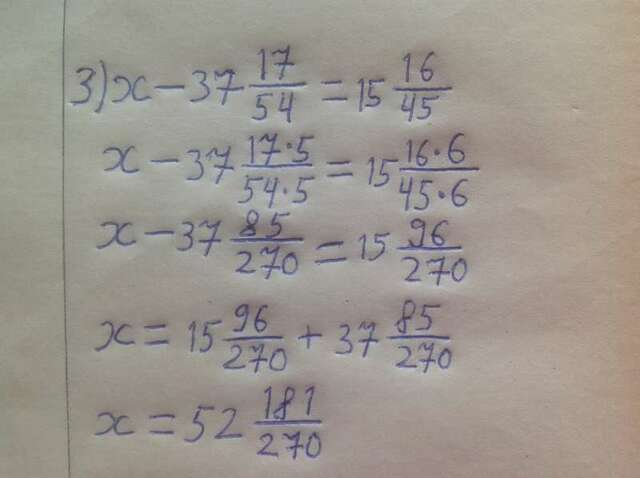 3) x - 37 17/54 = 15 16/45
x - 37 17·5/54·5 = 15 16·6/45·6
x - 37 85/270 = 15 96/270
x = 15 96/270 + 37 85/270
x = 52 181/270